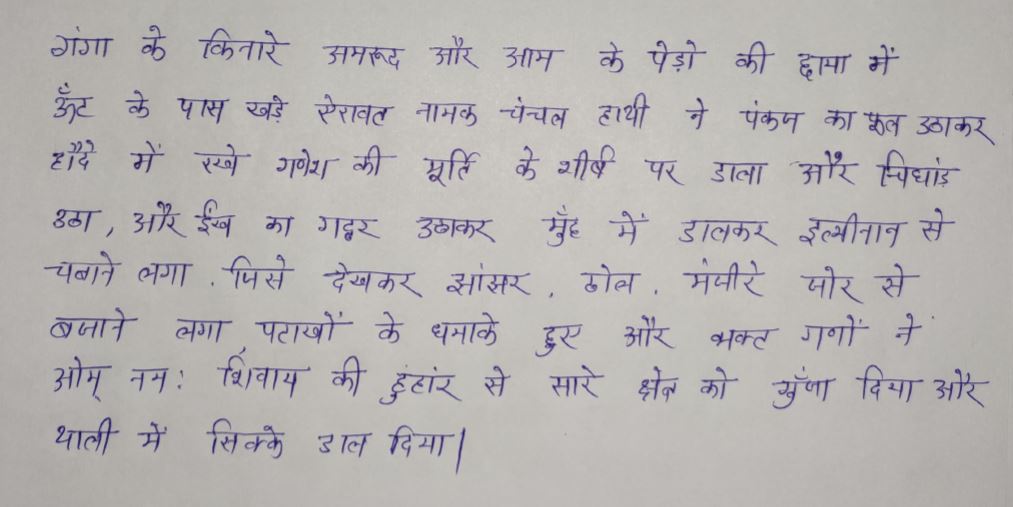 गंगा के किनारे अमरूद और आम के पेड़ो की छाया में
ऊँट के पास खड़े ऐरावत नामक चंचल हाथी ने पंकज का फूल उठाकर
हौदे में रखे गणेश की मूर्ति के शीर्ष पर डाला और चिघांड़
उठा, और ईख का गट्ठर उठाकर मुँह में डालकर इत्मीनान से
चबाने लगा. जिसे देखकर झांझर, ढोल, मंजीरे जोर से
बजाने लगा, पटाखों के धमाके हुए और भक्त गणों ने
ओम् नम: शिवाय की हुंहांर से सारे क्षेत्र को गुँजा दिया और
थाली में सिक्के डाल दिया|